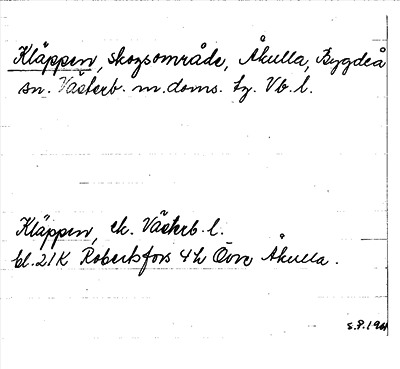 Kläppen, skogsområde, Åkulla, Bygdeå
sn. Västerb. m. doms. tg. Vb. l.
Kläppen, ek. Västerb. l.
bl. 21K Robertsfors 4h Övre Åkulla.
S.P. 19